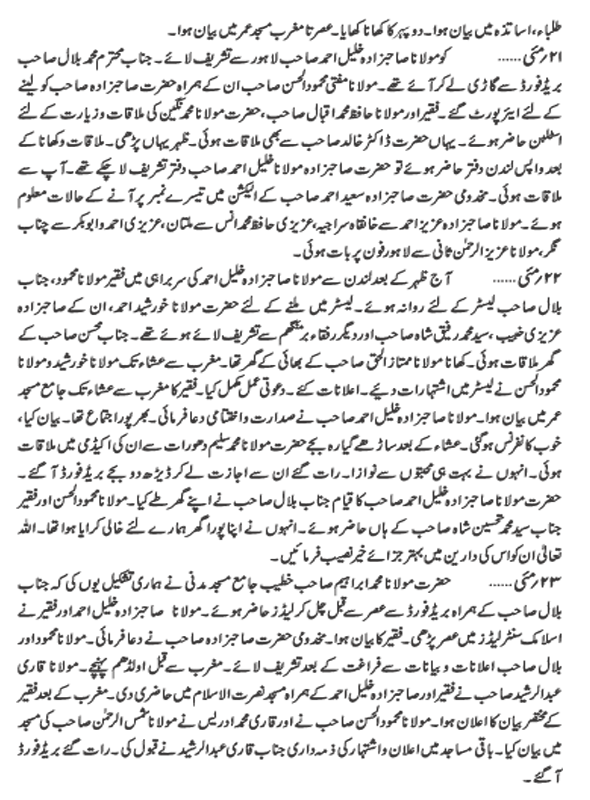 طلباء، اساتذہ میں بیان ہوا۔ دوپہر کا کھانا کھایا۔ عصر تا مغرب مسجد عمر میں بیان ہوا۔
۲۱ مئی ...... کو مولانا صاحبزادہ خلیل احمد صاحب لاہور سے تشریف لائے۔ جناب محترم محمد بلال صاحب
بریڈفورڈ سے گاڑی لے کر آئے تھے۔ مولانا مفتی محمود الحسن صاحب ان کے ہمراہ حضرت صاحبزادہ صاحب کو لینے
کے لئے ایئرپورٹ گئے۔ فقیر اور مولانا حافظ محمد اقبال صاحب، حضرت مولانا محمد نگین کی ملاقات وزیارت کے لئے
اسٹلٹن حاضر ہوئے۔ یہاں حضرت ڈاکٹر خالد صاحب سے بھی ملاقات ہوئی۔ ظہر یہاں پڑھی۔ ملاقات وکھانا کے
بعد واپس لندن دفتر حاضر ہوئے تو حضرت صاحبزادہ مولانا خلیل احمد صاحب دفتر تشریف لا چکے تھے۔ آپ سے
ملاقات ہوئی۔ مخدومی حضرت صاحبزادہ سعید احمد صاحب کے الیکشن میں تیسرے نمبر پر آنے کے حالات معلوم
ہوئے۔ مولانا صاحبزادہ عزیز احمد سے خانقاہ سراجیہ، عزیزی حافظ محمد انس سے ملتان، عزیزی احمد وابوبکر سے چناب
نگر، مولانا عزیز الرحمٰن ثانی سے لاہور فون پر بات ہوئی۔
۲۲ مئی ...... آج ظہر کے بعد لندن سے مولانا صاحبزادہ خلیل احمد کی سربراہی میں فقیر مولانا محمود، جناب
بلال صاحب لیسٹر کے لئے روانہ ہوئے۔ لیسٹر میں ملنے کے لئے حضرت مولانا خورشید احمد، ان کے صاحبزادہ
عزیزی خبیب، سید محمد رفیق شاہ صاحب اور دیگر رفقاء برمنگھم سے تشریف لائے ہوئے تھے۔ جناب محسن صاحب کے
گھر ملاقات ہوئی۔ کھانا مولانا ممتاز الحق صاحب کے بھائی کے گھر تھا۔ مغرب سے عشاء تک مولانا خورشید و مولانا
محمود الحسن نے لیسٹر میں اشتہارات دیئے۔ اعلانات کئے۔ دعوتی عمل مکمل کیا۔ فقیر کا مغرب سے عشاء تک جامع مسجد
عمر میں بیان ہوا۔ مولانا صاحبزادہ خلیل احمد صاحب نے صدارت واختتامی دعا فرمائی۔ بھرپور اجتماع تھا۔ بیان کیا،
خوب کانفرنس ہوگئی۔ عشاء کے بعد ساڑھے گیارہ بجے حضرت مولانا محمد سلیم دھورات سے ان کی اکیڈمی میں ملاقات
ہوئی۔ انہوں نے بہت ہی محبتوں سے نوازا۔ رات گئے ان سے اجازت لے کر ڈیڑھ دو بجے بریڈفورڈ آگئے۔
حضرت مولانا صاحبزادہ خلیل احمد صاحب کا قیام جناب بلال صاحب نے اپنے گھر طے کیا۔ مولانا محمود الحسن اور فقیر
جناب سید محمد تحسین شاہ صاحب کے ہاں حاضر ہوئے۔ انہوں نے اپنا پورا گھر ہمارے لئے خالی کرایا ہوا تھا۔ اللہ
تعالیٰ ان کو اس کی دارین میں بہتر جزائے خیر نصیب فرمائیں۔
۲۳ مئی ...... حضرت مولانا محمد ابراہیم صاحب خطیب جامع مسجد مدنی نے ہماری تشکیل یوں کی کہ جناب
بلال صاحب کے ہمراہ بریڈفورڈ سے عصر سے قبل چل کر لیڈز حاضر ہوئے۔ مولانا صاحبزادہ خلیل احمد اور فقیر نے
اسلامک سنٹر لیڈز میں عصر پڑھی۔ فقیر کا بیان ہوا۔ مخدومی حضرت صاحبزادہ صاحب نے دعا فرمائی۔ مولانا محمود اور
بلال صاحب اعلانات وبیانات سے فراغت کے بعد تشریف لائے۔ مغرب سے قبل اولڈھم پہنچے۔ مولانا قاری
عبدالرشید صاحب نے فقیر اور صاحبزادہ خلیل احمد کے ہمراہ مسجد نصرت الاسلام میں حاضری دی۔ مغرب کے بعد فقیر
کے مختصر بیان کا اعلان ہوا۔ مولانا محمود الحسن صاحب نے اور قاری محمد ادریس نے مولانا شمس الرحمٰن صاحب کی مسجد
میں بیان کیا۔ باقی مساجد میں اعلان واشتہار کی ذمہ داری جناب قاری عبدالرشید نے قبول کی۔ رات گئے بریڈفورڈ
آگئے۔